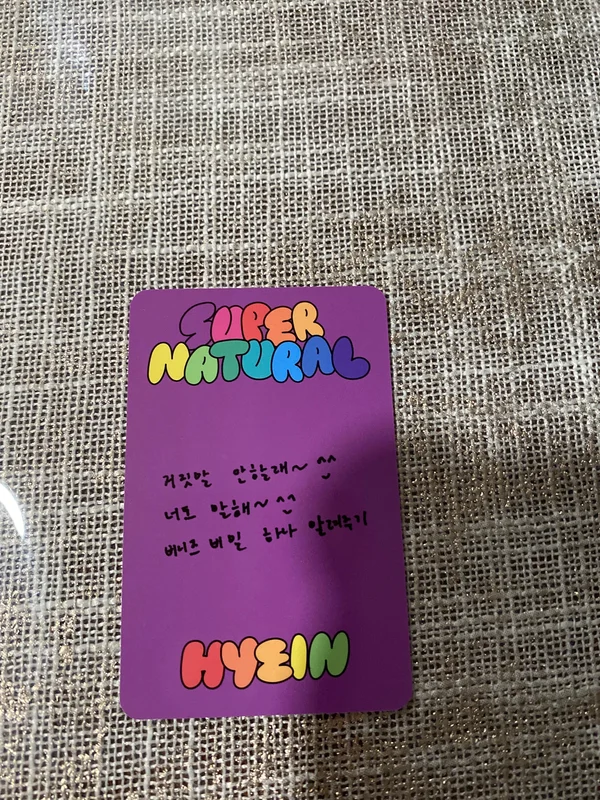 SUPER
NATURAL
거짓말 안할래~ ^^
너도 말해~ ^^
버니즈 비밀 하나 알려주기
HYEIN